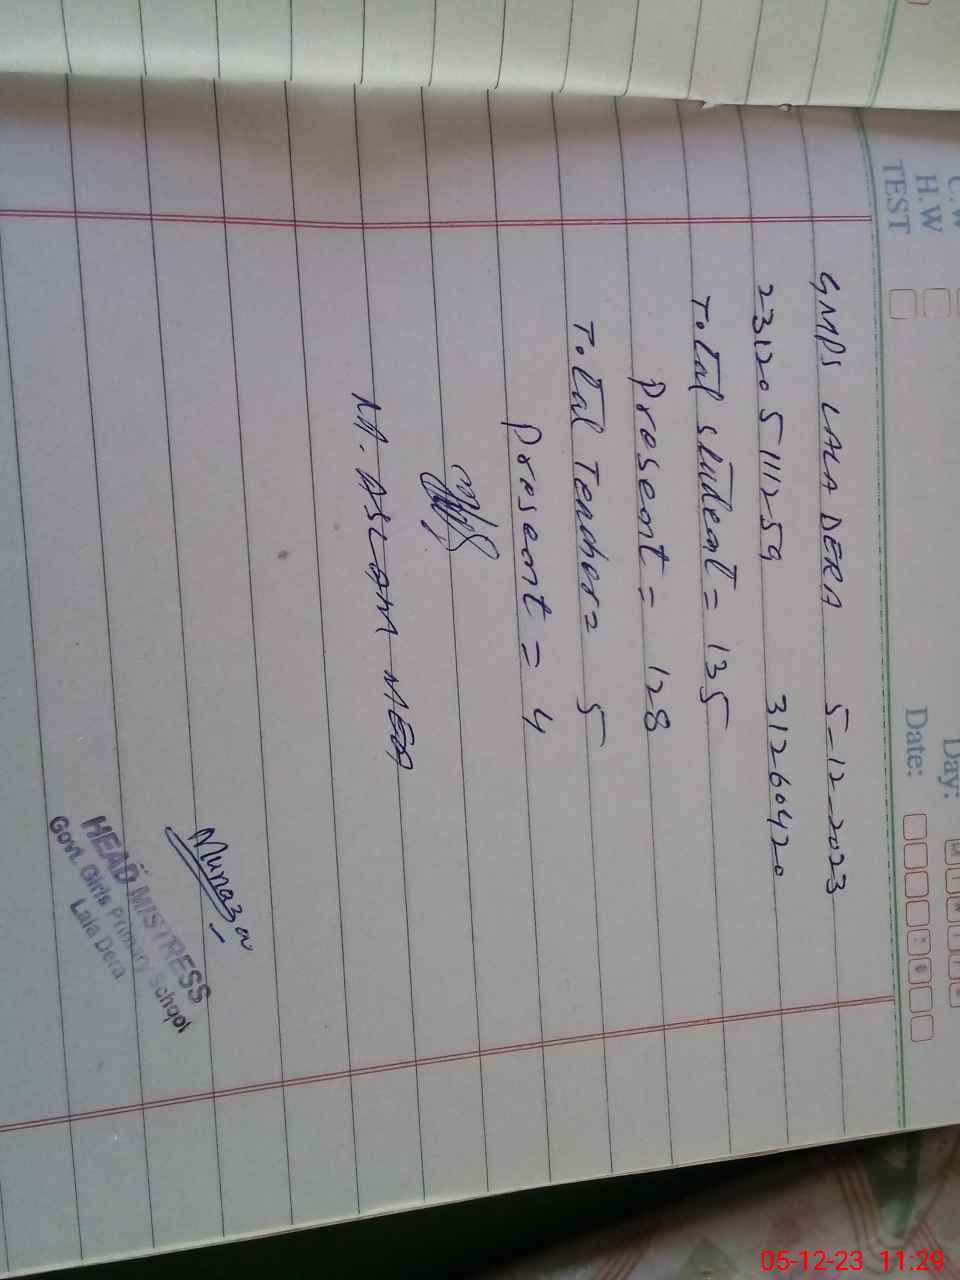 C.W
H.W
TEST
Day:
Date:
GMPS LALA DERA 5-12-2023
23120511259 31260420
Total student = 135
Present = 128
Total Teacher = 5
Present = 4
M. ASLAM MEA
Munaza
HEAD MISTRESS
Govt. Girls Primary School
Lala Dera
05-12-23 11:29